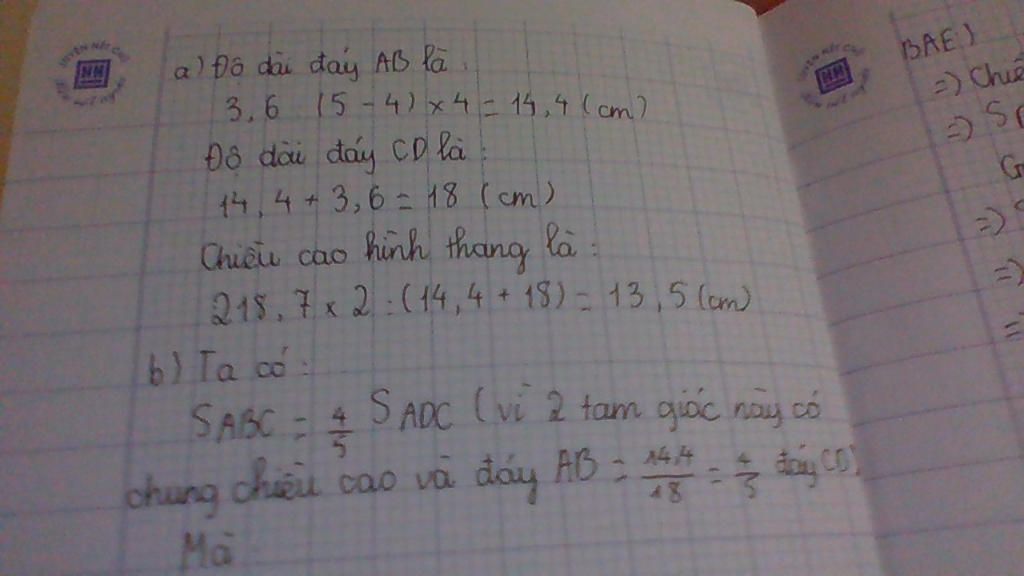 a) Độ dài đáy AB là :
3,6 : (5 - 4) × 4 = 14,4 (cm)
Độ dài đáy CD là :
14,4 + 3,6 = 18 (cm)
Chiều cao hình thang là :
218,7 × 2 : (14,4 + 18) = 13,5 (cm)
b) Ta có :
SABC = 4/5 SADC (vì 2 tam giác này có
chung chiều cao và đáy AB = 14,4/18 = 4/5 đáy CD)
Mà
BAE)
=) Chiề
=) S
=)
=)
=